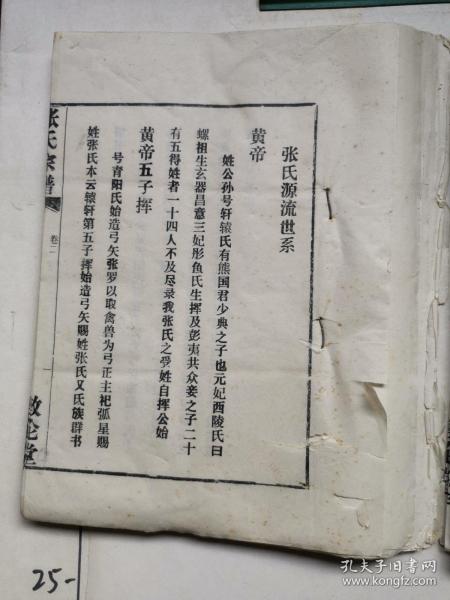 张氏源流世系
黄帝
姓公孙号轩辕氏有熊国君少典之子也元妃西陵氏曰
嫘祖生玄器昌意三妃彤鱼氏生挥及彭夷共众妾之子二十
有五得姓者一十四人不及尽录我张氏之受姓自挥公始
黄帝五子挥
号青阳氏始造弓矢张罗以取禽兽为弓正主祀弧星赐
姓张氏本云辕轩第五子挥始造弓矢赐姓张氏又氏族群书
张氏宗谱
卷二
一
敦伦堂
25-
孔夫子旧书网
www.kongfz.com